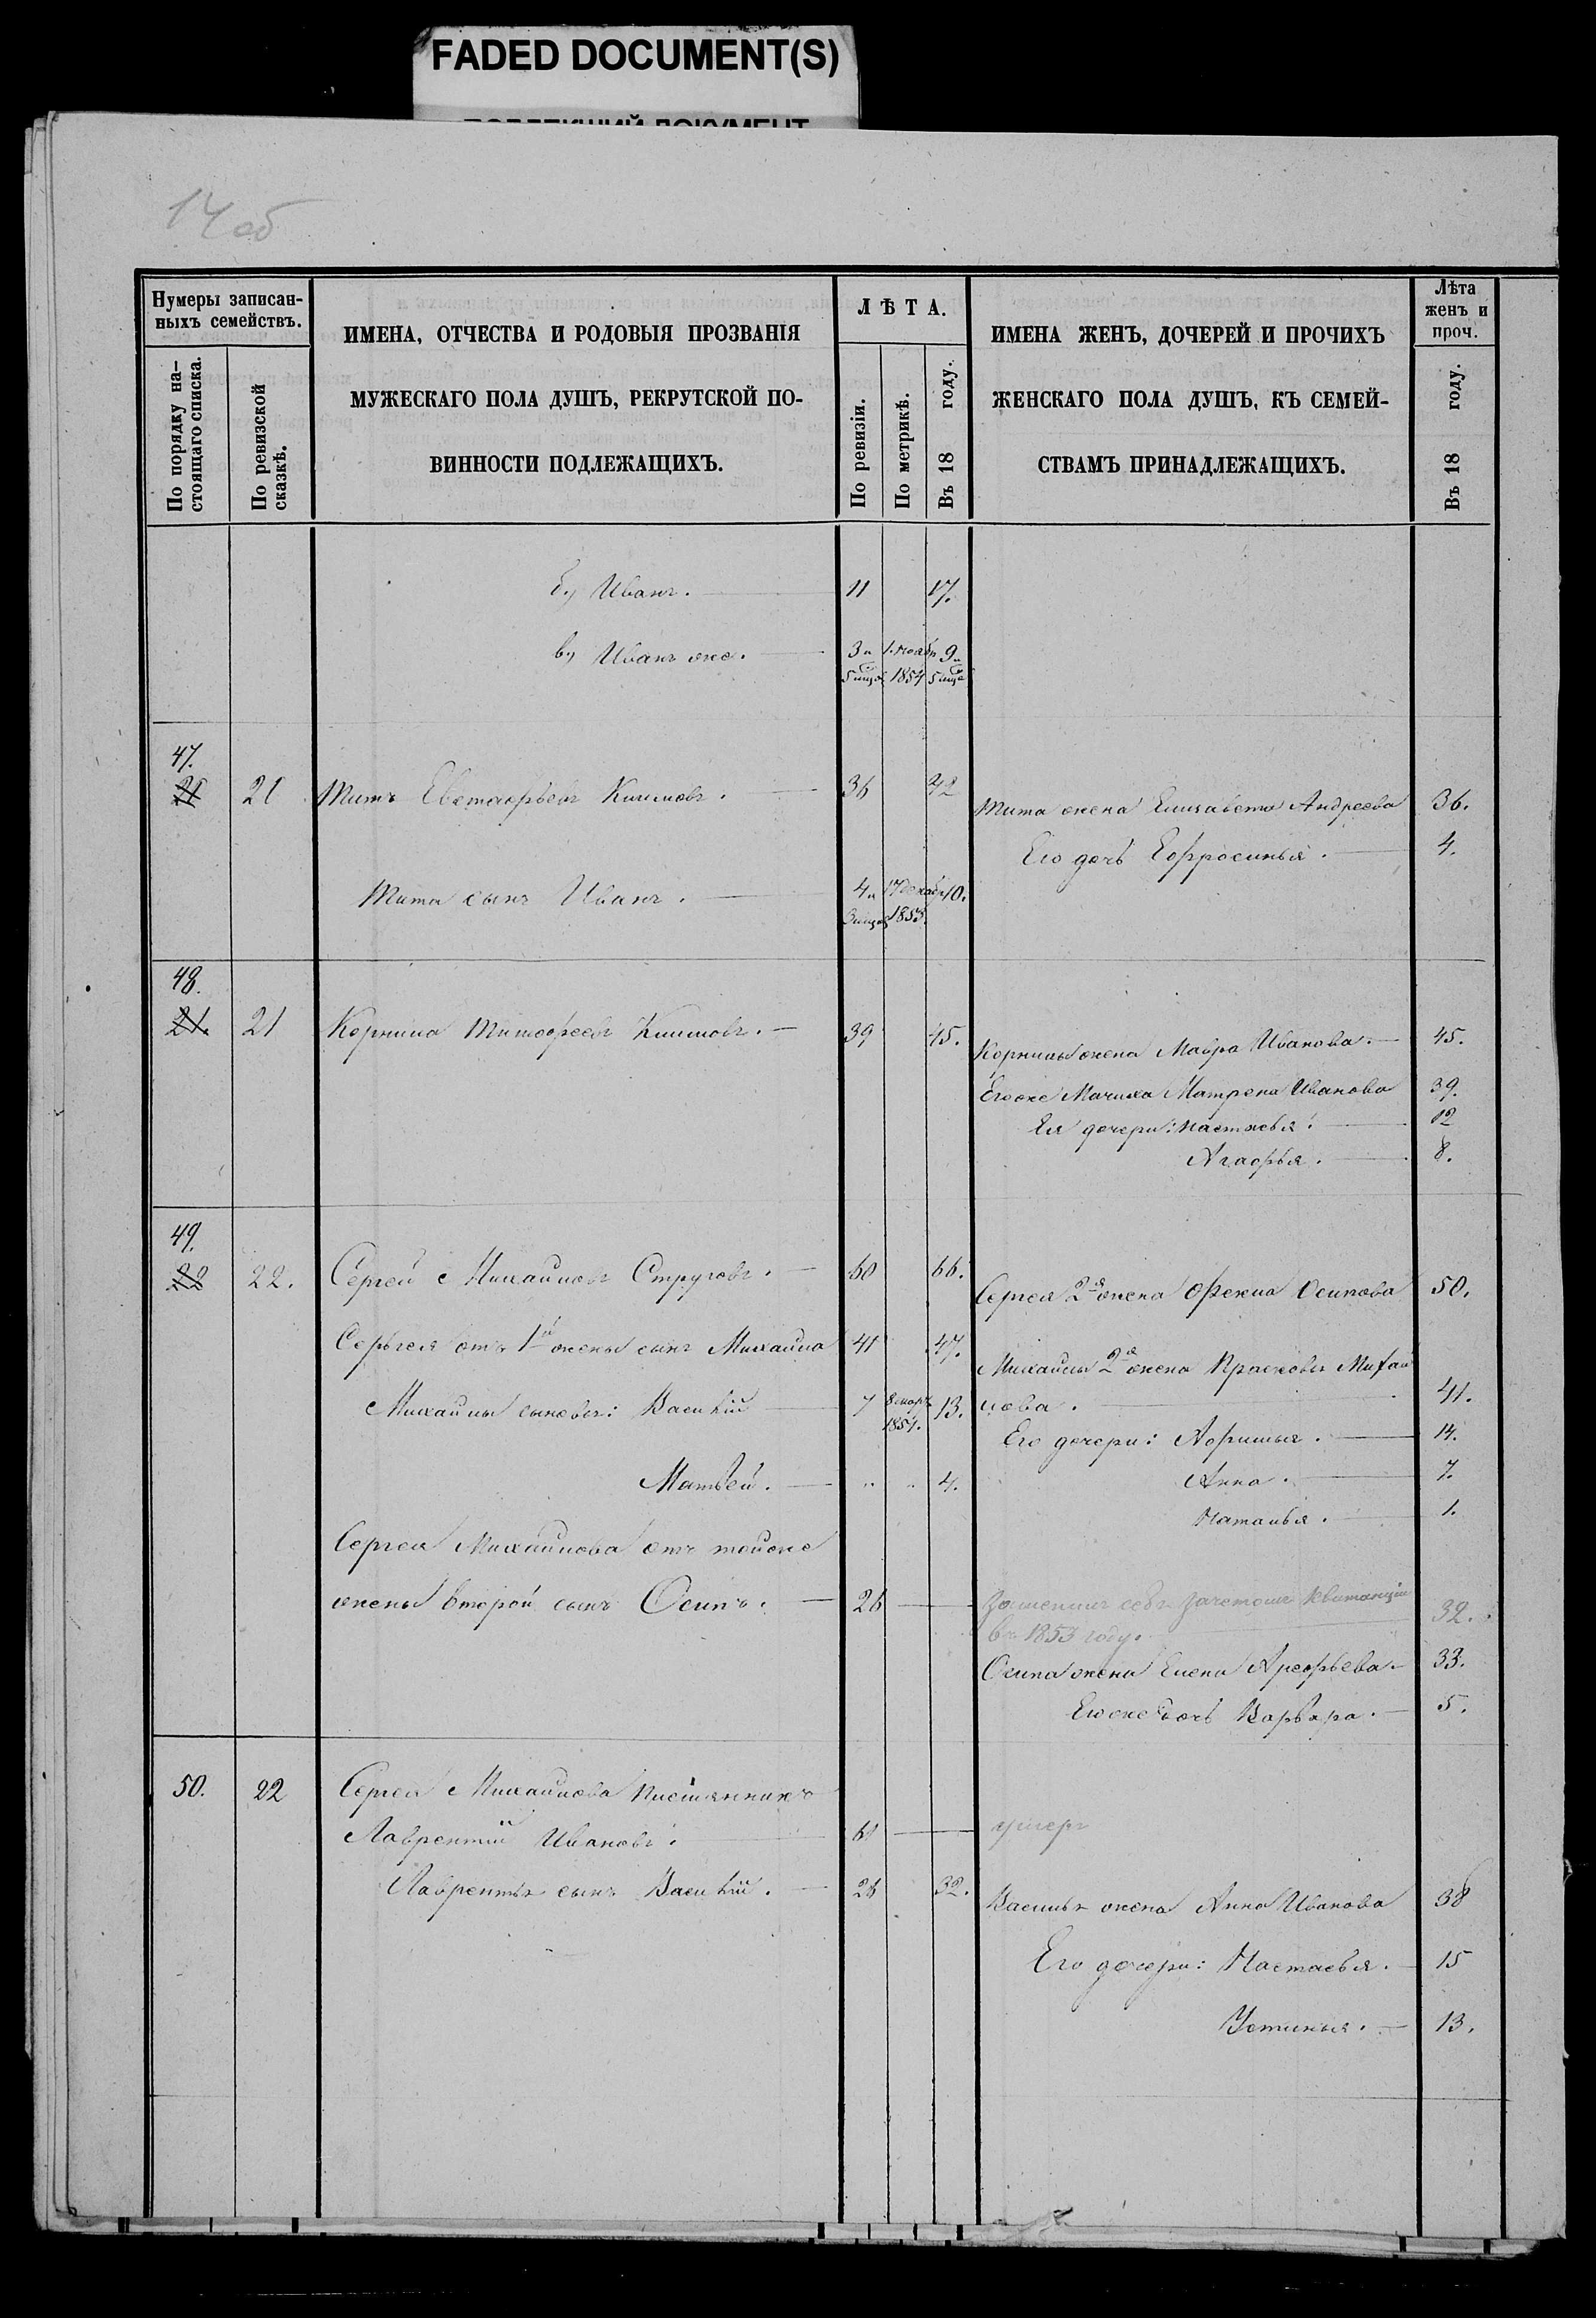 FADED DOCUMENT(S)
14 об
Нумеры записан-
ныхъ семействъ.
По порядку на-
стоящаго списка.
По ревизской
сказкѣ.
ИМЕНА, ОТЧЕСТВА И РОДОВЫЯ ПРОЗВАНІЯ
МУЖЕСКАГО ПОЛА ДУШЪ, РЕКРУТСКОЙ ПО-
ВИННОСТИ ПОДЛЕЖАЩИХЪ.
ЛѢТА.
По ревизіи.
По метрикѣ.
Въ 18 году.
ИМЕНА ЖЕНЪ, ДОЧЕРЕЙ И ПРОЧИХЪ
ЖЕНСКАГО ПОЛА ДУШЪ, КЪ СЕМЕЙ-
СТВАМЪ ПРИНАДЛЕЖАЩИХЪ.
Лѣта
женъ и
проч.
Въ 18 году.
б., Иванъ. 11 17.
в., Иванъ же. 3 и 1. ноябр 9 и
5 мцов 1854 5 мцв
47.
21 21 Титъ Климовъ. 36 42
Тита жена Елизавета Андреева 36.
Его дочь Ефросинья. 4.
Тита сынъ Иванъ. 4 и 17 декабр 10.
3 мцов 1853.
48.
21. 21 Корнила Тимофеевъ Климовъ. 39 45.
Корнилы жена Мавра Иванова. 45.
Его же Мачиха Матрена Иванова 39.
Ея дочери: Настасья. 12
Агафья. 8.
49.
22 22. Сергей Михайловъ Струговъ. 60 66.
Сергея 2я жена Фекла Осипова 50.
Сергея отъ 1й жены сынъ Михайла 41 47.
Михайлы 2я жена Прасковья Михай
лова. 41.
Михайлы сыновья: Василій 7 8 мар 13.
1851.
Его дочери: Афимья. 14.
Матвей. " " 4.
Анна. 7.
Наталья. 1.
Сергея Михайлова отъ той же
жены второй сынъ Осипъ. 26
Замѣнилъ себя зачетною квитанціею 32.
въ 1853 году.
Осипа жена Елена Арефьева. 33.
Его же дочь Варвара. 5.
50. 22 Сергея Михайлова племянникъ
Лаврентій Ивановъ. 61 умеръ
Лаврентья сынъ Василій. 26 32.
Василья жена Анна Иванова 38
Его дочери: Настасья. 15
Устинья. 13.